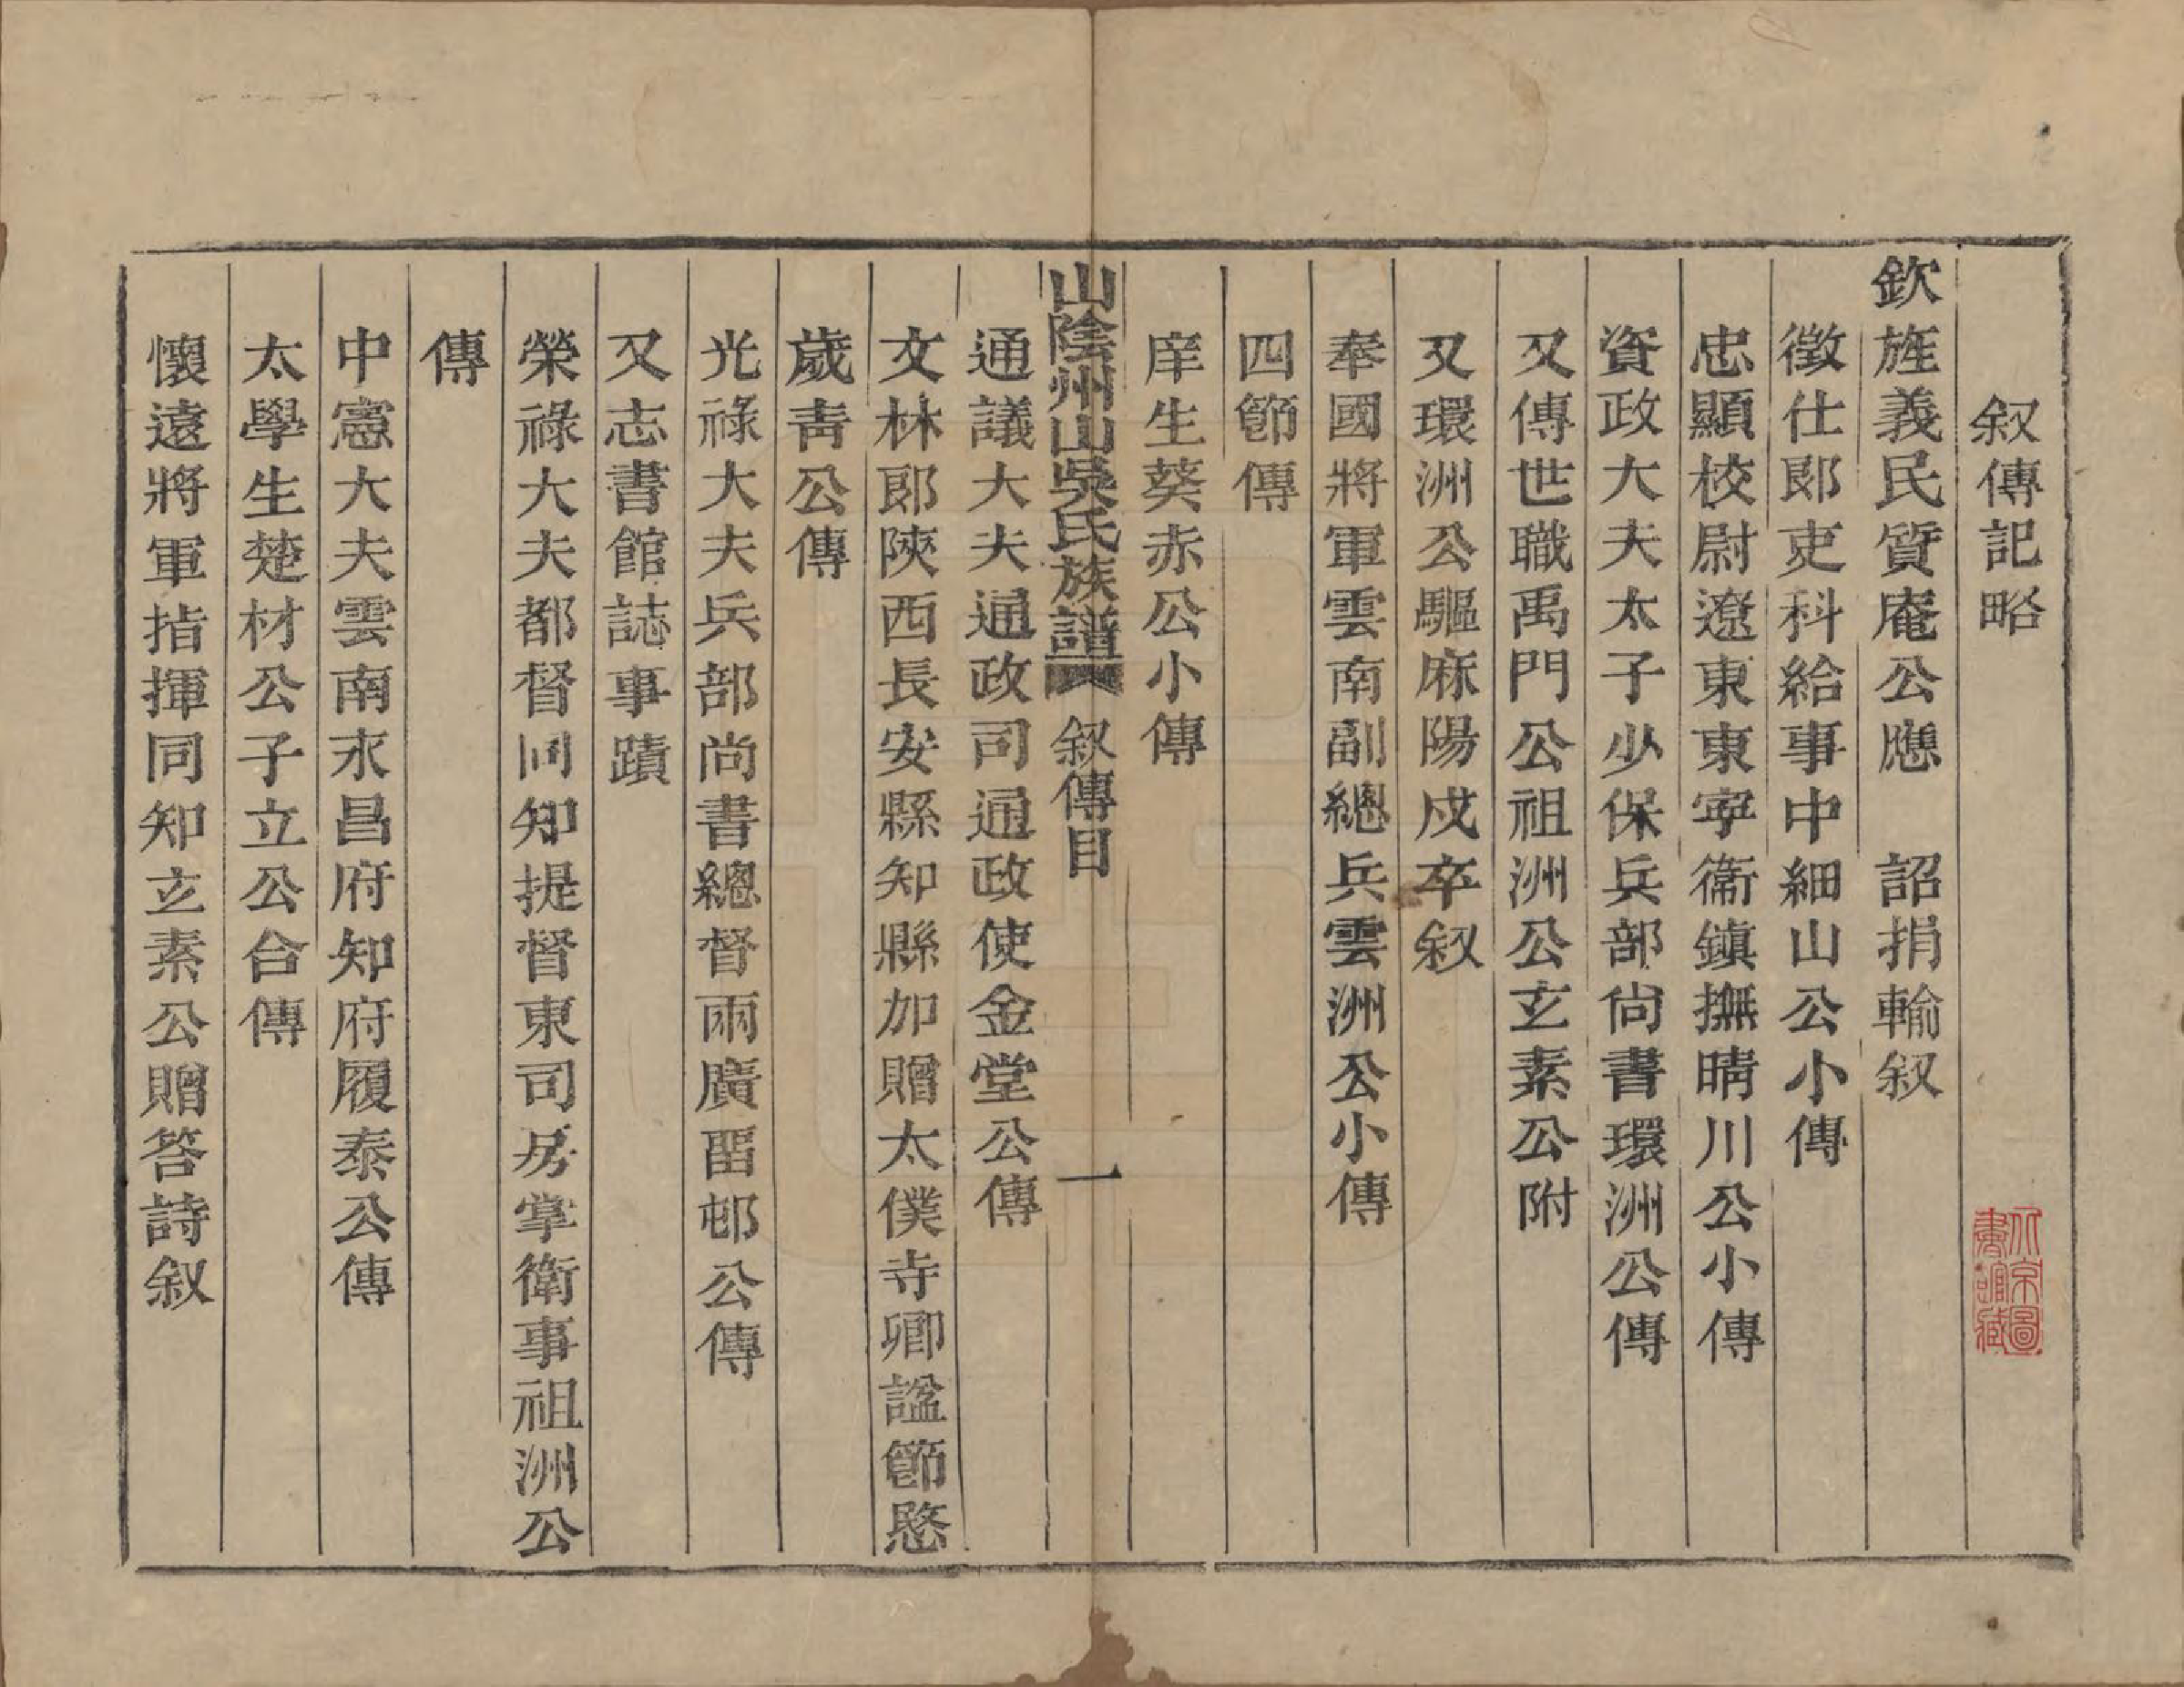 叙傳記略
欽旌義民質庵公應　詔捐輸叙
徵仕郎吏科給事中細山公小傳
忠顯校尉遼東東寧衞鎮撫晴川公小傳
資政大夫太子少保兵部尚書環洲公傳
又傳世職禹門公祖洲公玄素公附
又環洲公驅麻陽戍卒叙
奉國將軍雲南副總兵雲洲公小傳
四節傳
庠生葵赤公小傳
山陰州山吳氏族譜　叙傳目　一
通議大夫通政司通政使金堂公傳
文林郎陝西長安縣知縣加贈太僕寺卿諡節愍
歲青公傳
光祿大夫兵部尚書總督兩廣畱邨公傳
又志書館誌事蹟
榮祿大夫都督同知提督東司房掌衛事祖洲公
傳
中憲大夫雲南永昌府知府履泰公傳
太學生楚材公子立公合傳
懷遠將軍指揮同知玄素公贈答詩叙
北京圖
書館藏